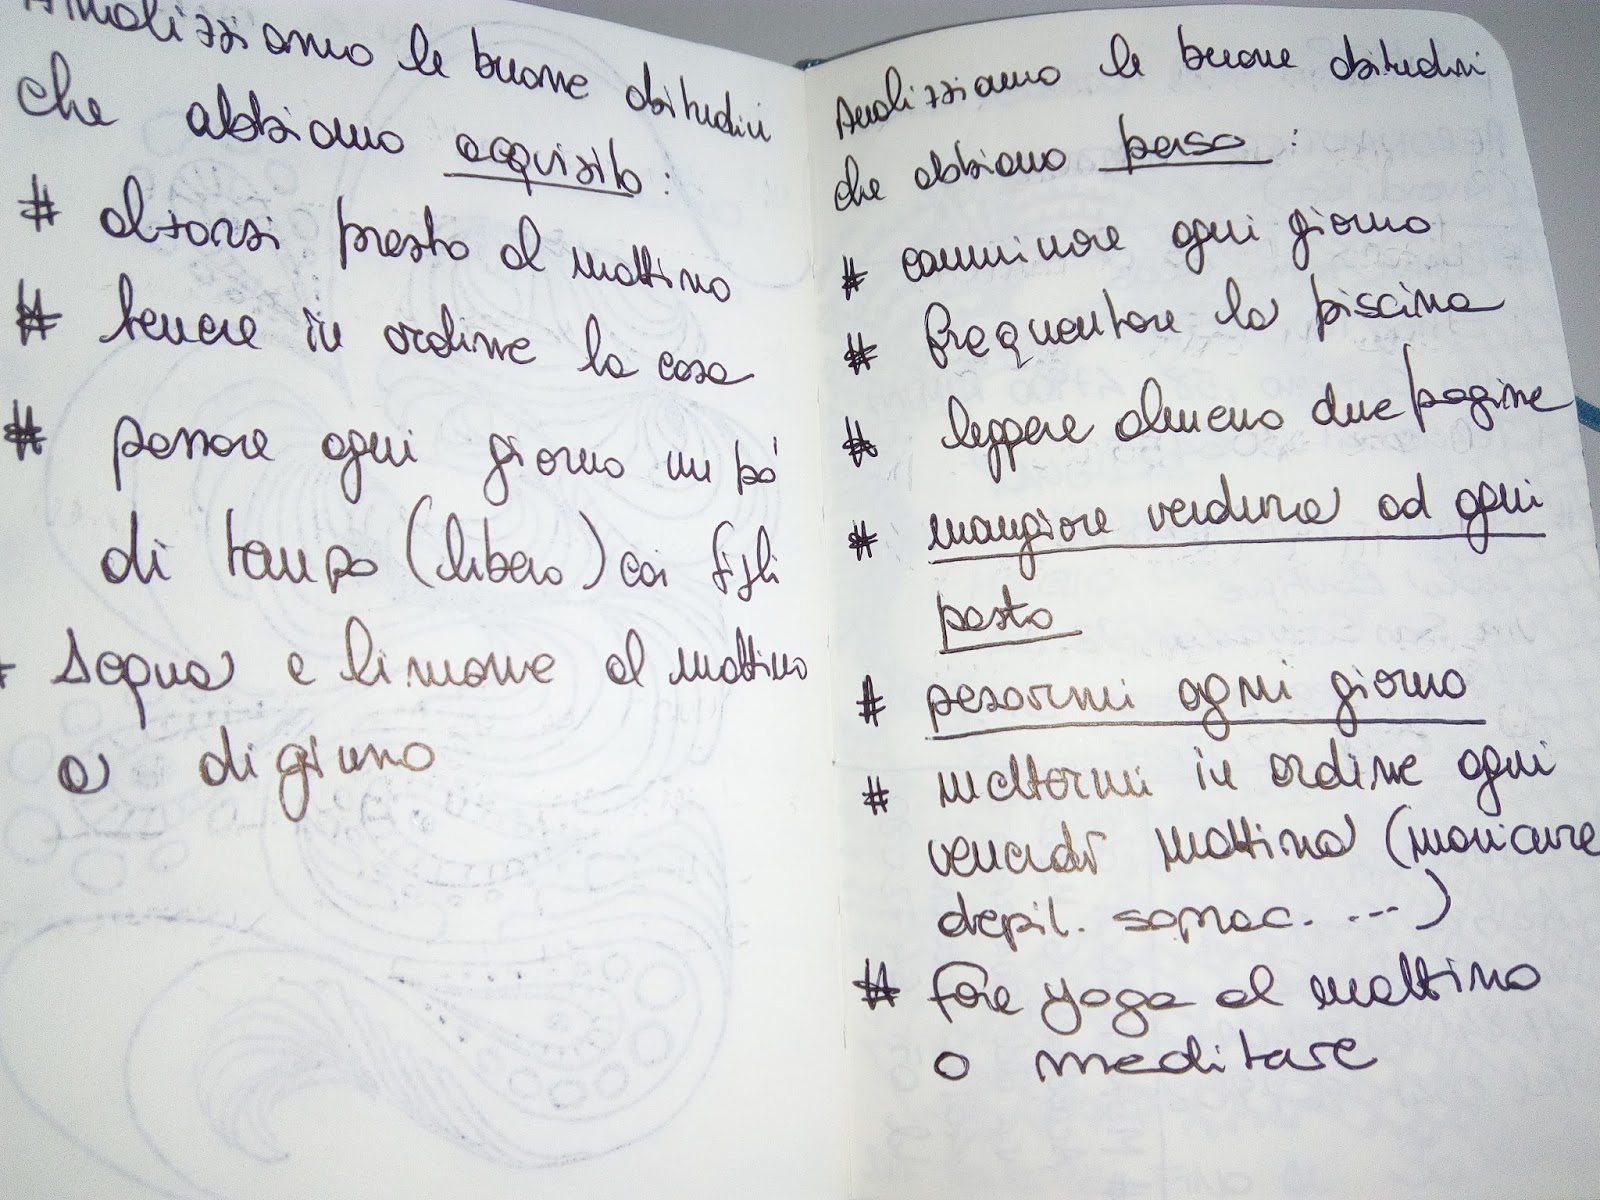 Analizziamo le buone abitudini
che abbiamo acquisito:
# alzarsi presto al mattino
# tenere in ordine la casa
# passare ogni giorno un pò
di tempo (libero) coi figli
# Acqua e limone al mattino
a digiuno
Analizziamo le buone abitudini
che abbiamo perso:
# camminare ogni giorno
# frequentare la piscina
# leggere almeno due pagine
# mangiare verdura ad ogni
pasto
# pesarmi ogni giorno
# mettermi in ordine ogni
venerdì mattina (manicure
depil. soprac. ...)
# fare yoga al mattino
o meditare